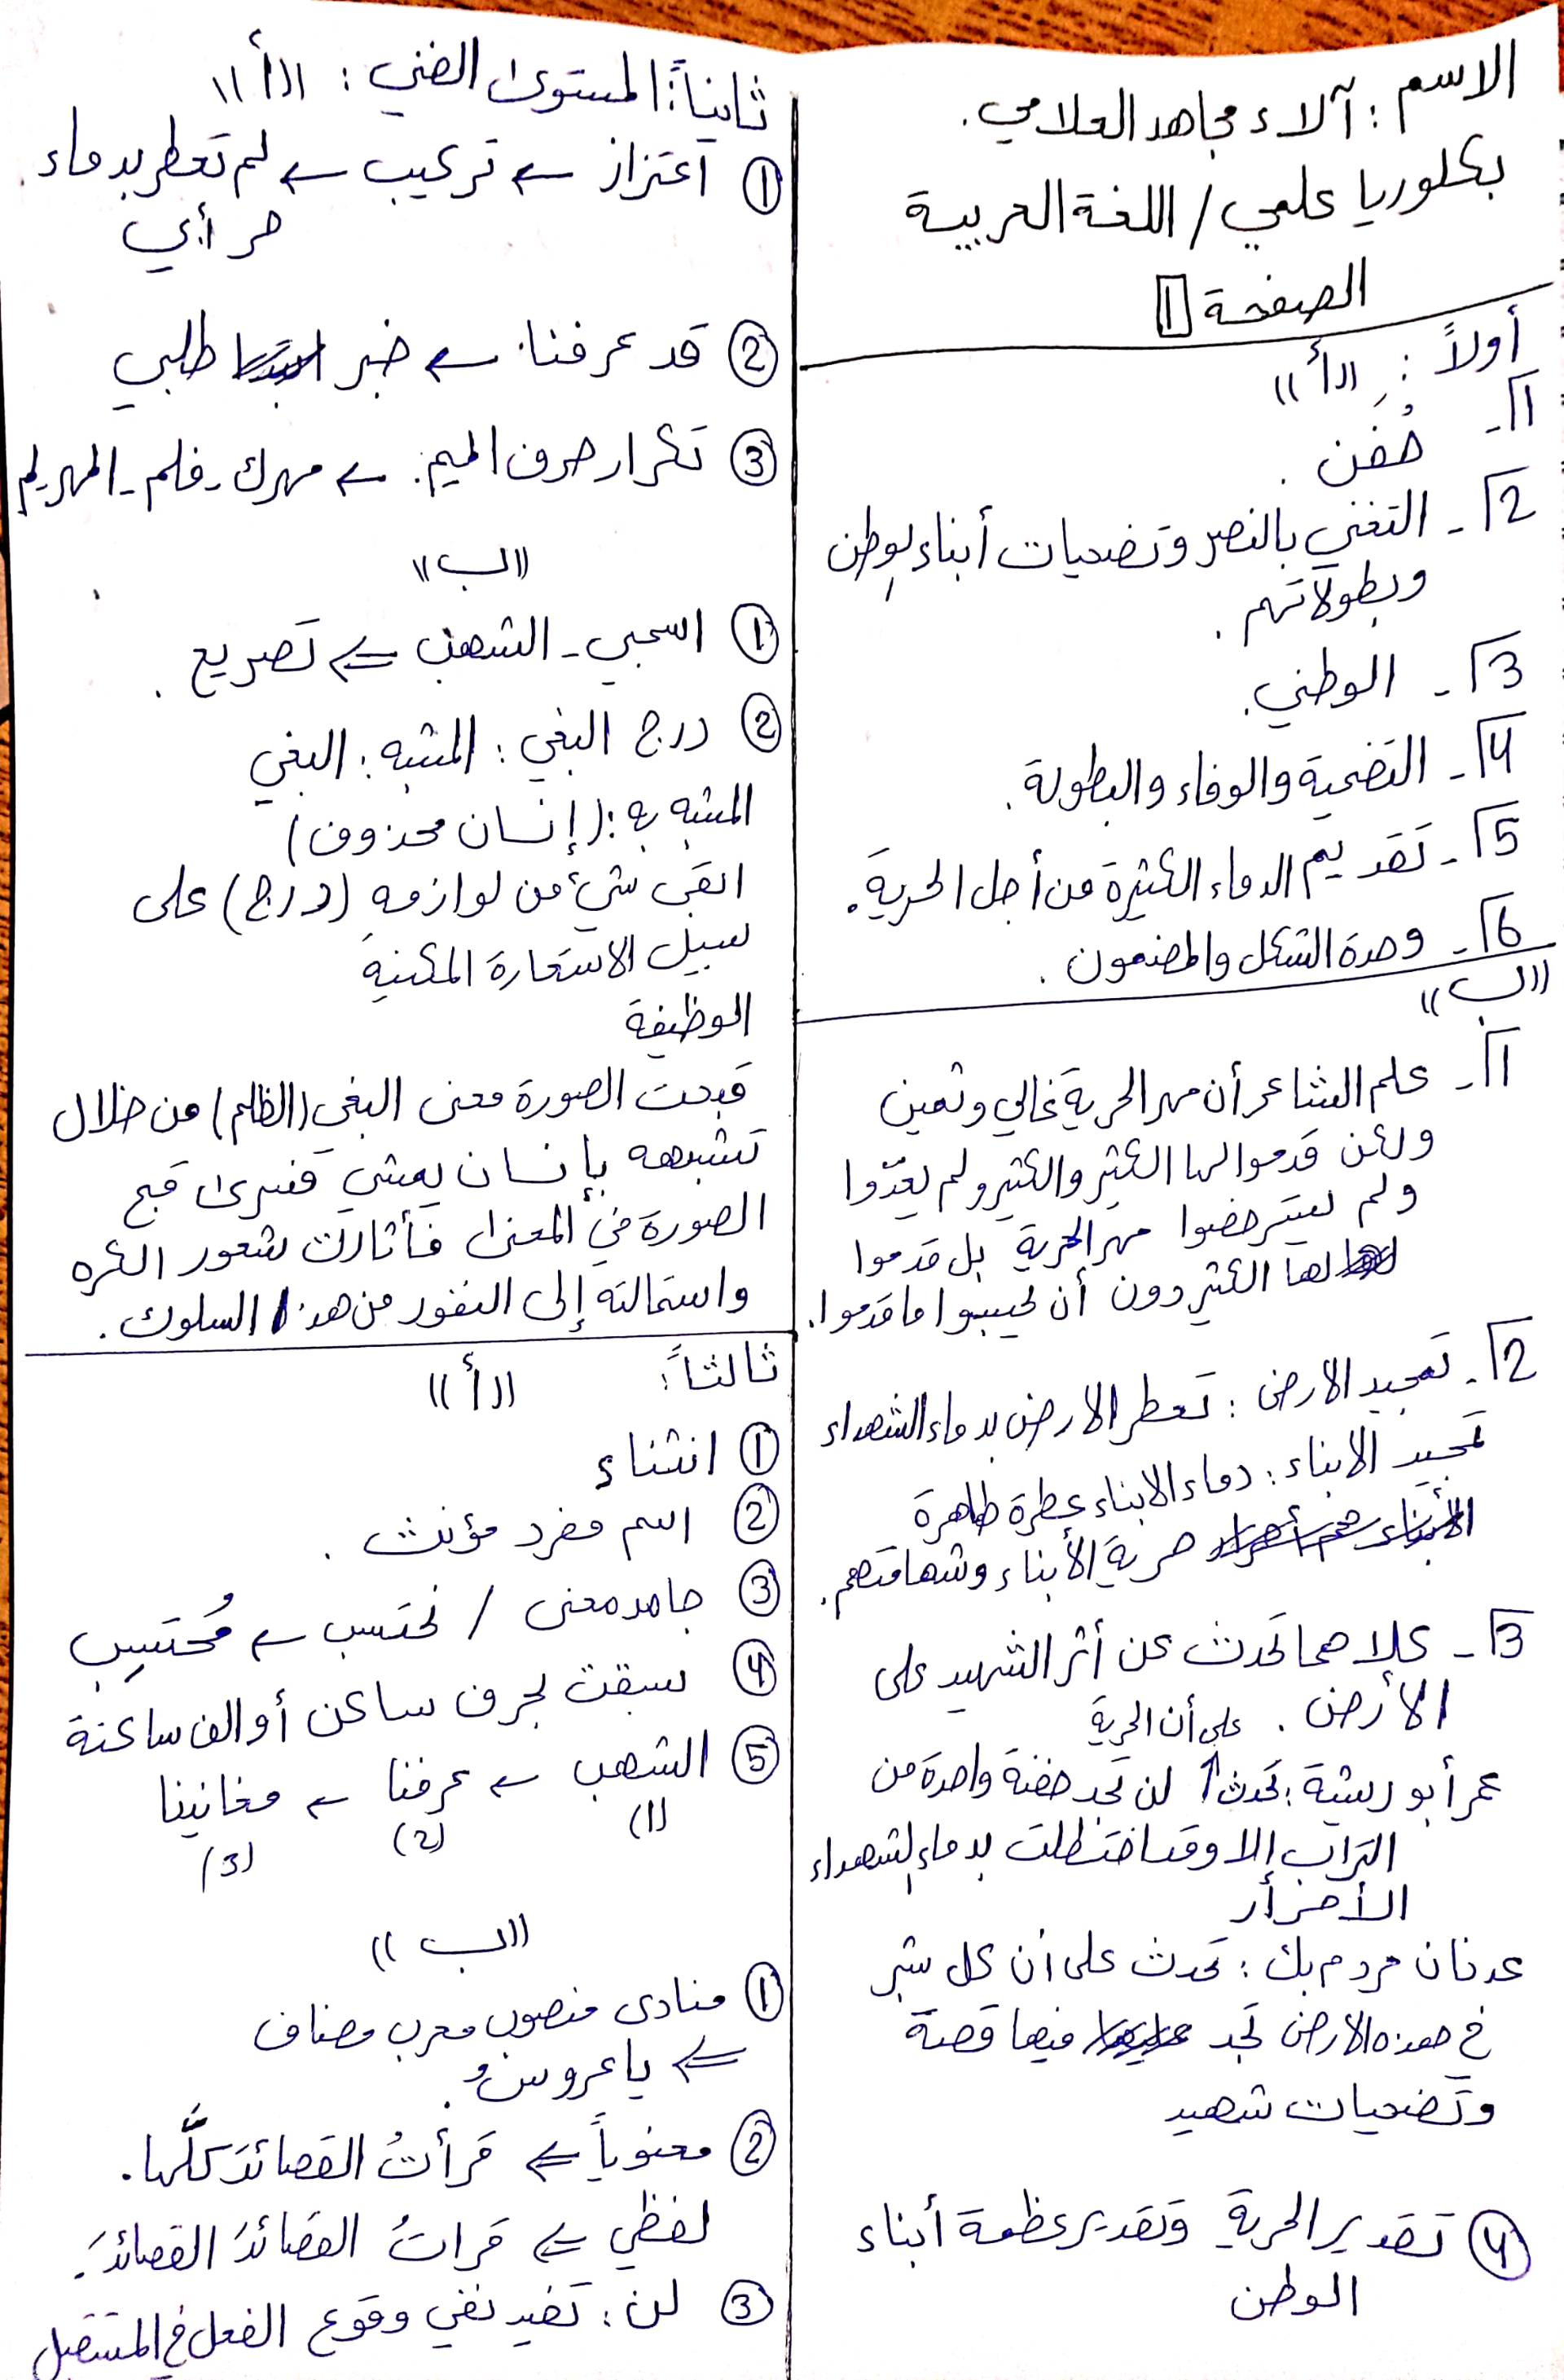 الاسم : آلاء مجاهد العلامي.
بكلوريا علمي / اللغة العربية
الصفحة 1
أولاً : ((أ))
1- حُفَن.
2- التغني بالنصر وتضحيات أبناء الوطن
وبطولاتهم.
3- الوطني.
4- التضحية والوفاء والبطولة.
5- تقديم الدماء الكثيرة من أجل الحرية.
6- وحدة الشكل والمضمون.
((ب))
1- علم الشاعر أن مهر الحرية غالي وثمين
ولكن قدموا لها الكثير والكثير ولم يعدّوا
ولم يسترخصوا مهر الحرية بل قدموا
لها الكثير دون أن يحسبوا ما قدموا.
2- تمجيد الارض : تعطر الارض بدماء الشهداء
تمجيد الابناء : دماء الابناء عطرة طاهرة
حرية الأبناء وشهامتهم.
3- كلاهما تحدث عن أثر الشهيد على
الأرض .
عمر أبو ريشة : تحدث على أن الحرية لن تجد حفنة واحدة من
التراب إلا وقد اختطلت بدماء الشهداء
الأحرار
عدنان مردم بك : تحدث على أن كل شبر
في هذه الارض تجد فيها قصة
وتضحيات شهيد
4 تقدير الحرية وتقدير عظمة أبناء
الوطن
ثانياً : المستوى الفني : ((أ))
1 اعتزاز ← تركيب ← لم تعطر بدماء
حر أبي
2 قد عرفنا ← خبر طلبي
3 تكرار حرف الميم. ← مهرك - فلم - المهر لم
((ب))
1 اسحبي - الشهب ⇐ تصريع .
2 درج البغي : المشبه : البغي
المشبه به : (إنسان محذوف)
ابقى شيء من لوازمه (درج) على
سبيل الاستعارة المكنية
الوظيفة
قبحت الصورة معنى البغي (الظلم) من خلال
تشبيهه بإنسان يمشي فسرى قبح
الصورة في المعنى فأثارت شعور الكره
واستمالته إلى النفور من هذا السلوك.
ثالثاً : ((أ))
1 انثناء
2 اسم مفرد مؤنث .
3 جامد معنى / تحتسب ← مُحتَسِب
4 سبقت بحرف ساكن أو الف ساكنة
5 الشهب ← عرفنا ← مغانينا
(1) (2) (3)
((ب))
1 منادى منصوب معرب مضاف
⇐ يا عروسُ.
2 معنوياً ⇐ قرأتُ القصائدَ كلَّها.
لفظي ⇐ قرات القصائدَ القصائدَ.
3 لن : تفيد نفي وقوع الفعل في المستقبل